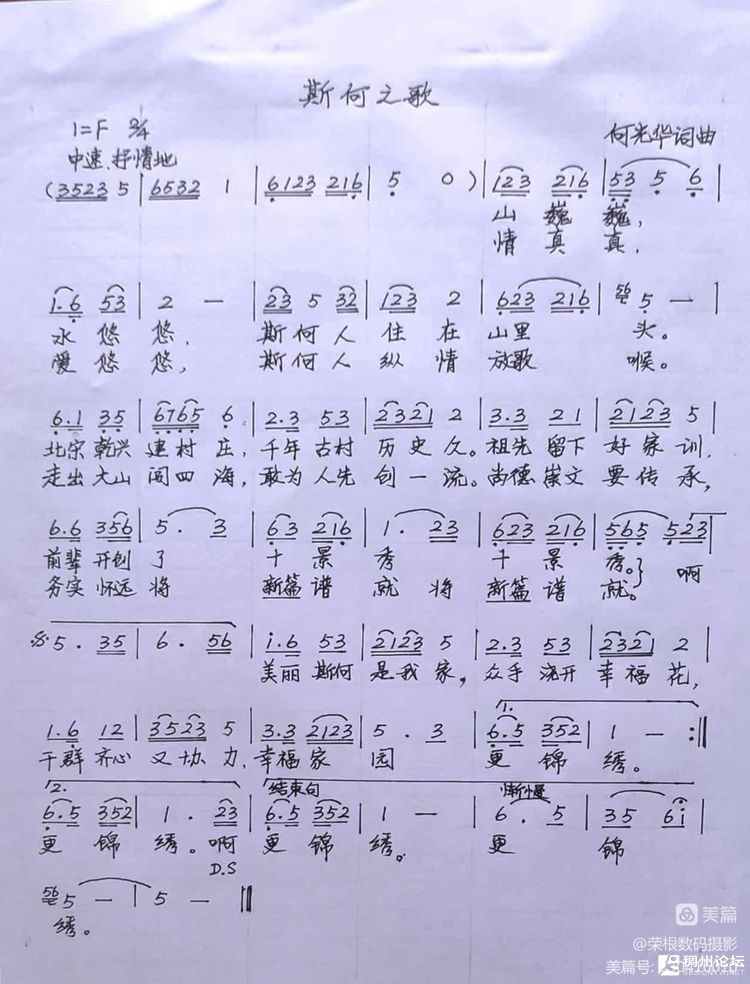 斯何之歌
1=F 2/4
何光华词曲
中速、抒情地
(3523 5 | 6532 1 | 6123 216 | 5 0 ) | 123 216 | 53 5 6 |
山 巍 巍,
情 真 真,
1.6 53 | 2 — | 23 5 32 | 123 2 | 623 216 | 56 5 — |
水 悠 悠, 斯何人 住 在 山里 头。
爱 悠 悠, 斯何人 纵 情 放歌 喉。
6.1 35 | 6765 6 | 2.3 53 | 2321 2 | 3.3 21 | 2123 5 |
北宗 乾兴 建村 庄, 千年 古村 历史 久。祖先 留下 好家 训,
走出 大山 闯四 海, 敢为 人先 创一 流。尚德 崇文 要传 承,
6.6 356 | 5 . 3 | 63 216 | 1 . 23 | 623 216 | 565 523 |
前辈 开创 了 十 景 秀 十 景 秀。} 啊
务实 怀远 将 新篇 谱 就 将 新篇 谱 就。
5 . 35 | 6 . 56 | i.6 53 | 2123 5 | 2.3 53 | 2321 2 |
美丽 斯何 是我 家, 众手 浇开 幸福 花,
1.
1.6 12 | 3523 5 | 3.3 2123 | 5 . 3 | 6.5 352 | 1 — :||
干群 齐心 又协 力, 幸福 家 园 更 锦 绣。
2. 结束句 渐慢
6.5 352 | 1 . 23 | 6.5 352 | 1 — | 6 . 5 | 35 6i |
更 锦 绣。啊 更 锦 绣。 更 锦
D.S
56 5 — | 5 — ||
绣。
美篇
@荣根数码摄影
美篇号:
稠州论坛